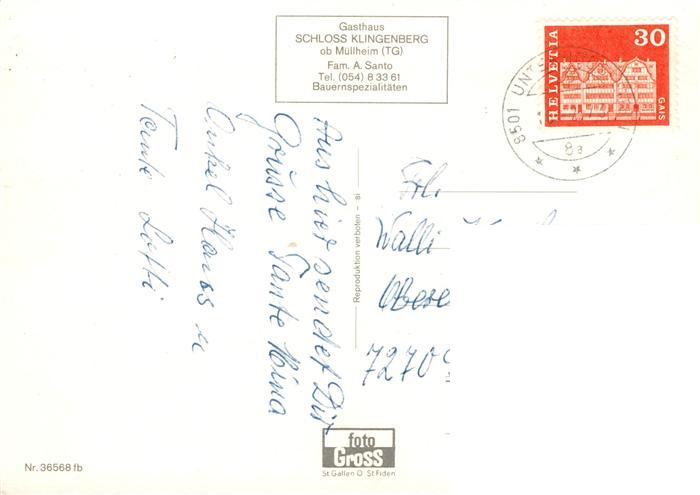 Gasthaus
SCHLOSS KLINGENBERG
ob Müllheim (TG)
Fam. A. Santo
Tel. (054) 8 33 61
Bauernspezialitäten
HELVETIA
30
GAIS
8501 UNTE
8a
Aus hier sendet Dir
Grüsse Tante Mina
Onkel Hans u
Tante Lotti
Reproduktion verboten – si
Frl.
Walli
Obere
7270
foto
Gross
St Gallen O St Fiden
Nr. 36568 fb